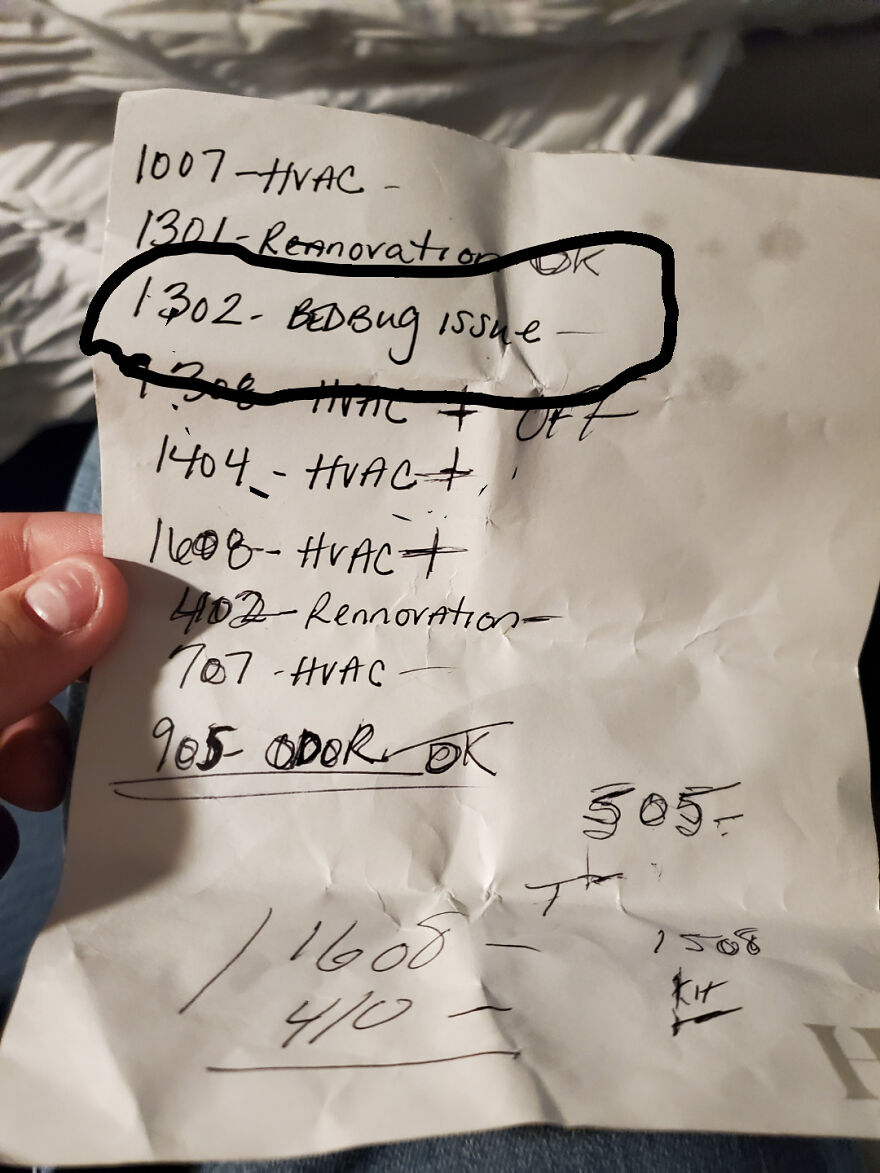 1007 - HVAC -
1301 - Rennovation OK
1302 - BEDBug issue -
1308 HVAC + OFF
1404 - HVAC +
1608 - HVAC +
402 - Rennovation -
707 - HVAC -
905 - ODOR OK
505 -
1608 -
1508
KH
410 -
H